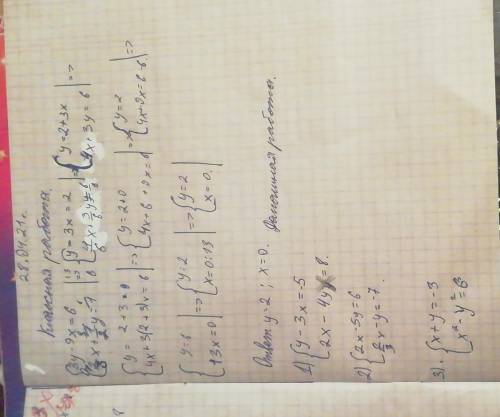 28.04.21г.
Класная работа.
{3y - 9x = 6 |:3 => {y - 3x = 2 => {y = 2 + 3x =>
{4x + 3y = 6
{y = 2 + 3•0
{4x + 3(2+3)x = 6 => {y = 2+0 {4x + 6 + 9x = 6 => {y = 2 {4x + 9x = 6-6 =>
{y = 2 {x = 0:13 => {y = 2 {x = 0.
{13x = 0
Ответ y = 2; x = 0.
Домашняя работа.
1) {y - 3x = -5 {2x - 4y = 8.
2) {2x - 5y = 6 {y = -7.
3). {x + y = -3 {x² - y² = 6